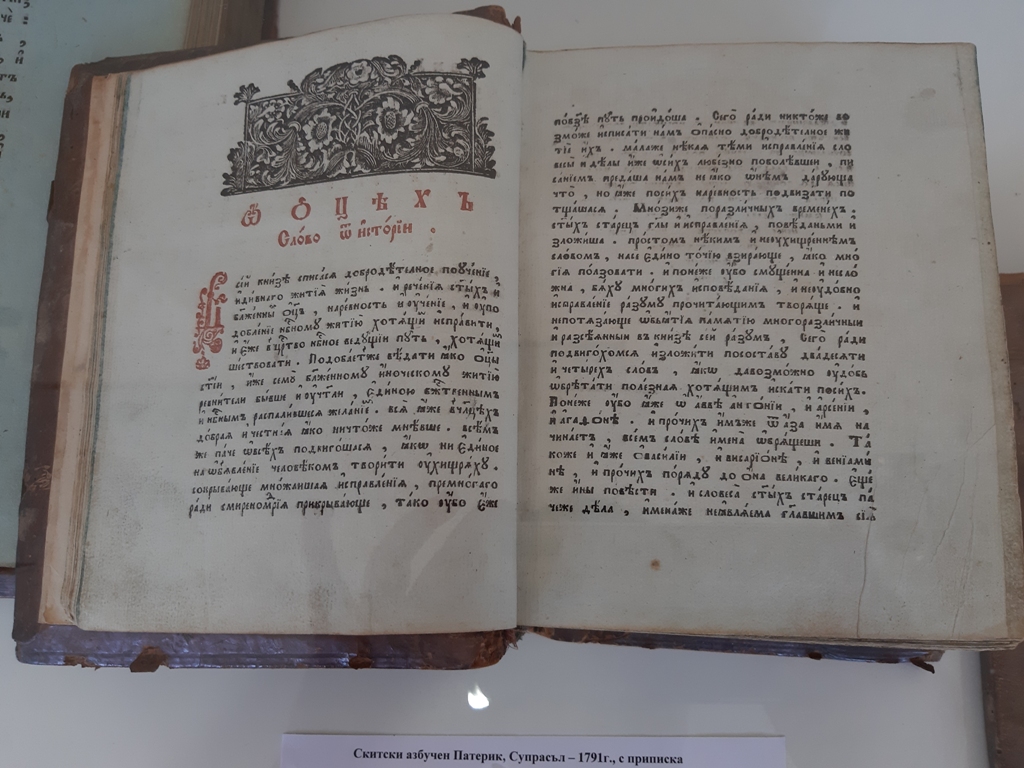 Ѿ О́ Ц Ѣ́ Х Ъ
Сло́во ѿ и҆сто́рїи .
В сїй кни́зѣ списа́сѧ добродѣ́телное поꙋче́нїе ,
и҆ди́внагѡ житїѧ̀ жи́знь . и҆рече́нїѧ ст҃ы́хъ и҆
бл҃же́нны ѻ҆ц҃ъ , наре́вность и҆ᲂу҆че́нїе , и҆ᲂу҆по
добле́нїе нб҃ному житїю̀ хотѧ́щїи и҆спра́вити ,
и҆ є҆́же в црⷭ҇тво нб҃ное ведꙋ́щїи пꙋть , хотѧ́щїи
ше́ствовати . Подоба́етже вѣ́дати ꙗ҆́кѡ ѻ҆ц҃ы
ст҃і́и , и҆́же семꙋ̀ бл҃же́нномꙋ и҆но́ческомꙋ житїю̀
ревни́тели бы́вше и҆ᲂу҆чт҃ли , є҆ди́ною бж҃твеннымъ
и҆ нб҃нымъ распали́вшесѧ жела́нїе . всѧ̑ ꙗ҆́же в чл҃цѣхъ
до́браѧ и҆ честна́ѧ ꙗ҆́кѡ ничто́же мнѣ́вше . всѣ́мъ
же па́че ѡ҆всѣ́хъ подви́гошасѧ , ꙗ҆́кѡ ни є҆ди́ное
наѡ҆б̾ѧвле́нїе человѣ́комъ твори́ти ᲂу҆хищрѧ́хꙋ .
сокрыва́юще мно́жаишаѧ и҆справле́нїѧ , премно́гаго
ра́ди смиреномꙋ́дрїѧ прикрыва́юще , та́ко ᲂу҆̀бо є҆́же
по бз҃ѣ пꙋть проидо́ша . Сегѡ̀ ра́ди никто́же во
змо́же и҆списа́ти на́мъ ѻ҆па́сно добродѣ́телное жи
тїѐ и҆́хъ . ма́лаже нѣ́каѧ тѣ́ми и҆справле́нїѧ сло
весы̀ и҆ дѣ́лы и҆̀же ѡ҆си́хъ любе́зно поболѣ́вшеи , пи
са́нїемъ преда́ша на́мъ не ꙗ҆́кѡ ѡ҆нѣ́мъ да́рꙋюща
что̀ , но ꙗ҆́же поси́хъ на́ревность подвиза́ти по
тща́шасѧ . Мно́зиже поразли́чныхъ времене́хъ .
ст҃ы́хъ ста́рецъ гл҃ы и҆ и҆справле́нїѧ , повѣ́даньми и҆
зложи́ша . про́стомъ нѣ́кимъ и҆ неᲂу҆хищре́ннѣмъ
сло́вомъ , насѐ є҆ди́но то́чїю взира́юще , ꙗ҆́кѡ мно
гі́ѧ по́лзовати . и҆ поне́же ᲂу҆̀бо смꙋще́нна и҆ несло
жна , бѧ́хꙋ мно́гихъ и҆сповѣ́данїѧ , и҆ неᲂу҆до́бно
и҆справле́нїе ра́зꙋмꙋ прочита́ющимъ творѧ́ще . и҆
непотѧза́юще ѡ҆б̾ѧ́тїѧ па́мѧтїю многоразли́чныи
и҆ разсѣ́ѧнныи въ кни́зѣ се́и ра́зꙋмъ , Сегѡ̀ ра́ди
подвиго́хомсѧ и҆зложи́ти пососта́вꙋ два́десѧти
и҆ четы́рехъ сло́въ , ꙗ҆́кѡ давозмо́жно ᲂу҆до́бь
ѡ҆брѣта́ти поле́знаѧ хотѧ́щимъ и҆ска́ти поси́хъ .
Поне́же ᲂу҆̀бо ꙗ҆́же ѡ҆ а҆́ввѣ а҆нто́нїи , и҆ а҆рсе́нїи ,
и҆ а҆гаѳо́нѣ . и҆ про́чихъ и҆́мъже ѿ а҆́за и҆́мѧ на
чина́етъ , всѣ́мъ сло́вѣ и҆мена̀ ѡ҆брѧ́щеши . Та
коже и҆ ꙗ҆́же ѡ҆васи́лїи , и҆ висарїо́нѣ , и҆ венїамі
нѣ , и҆ про́чихъ по́рѧдꙋ до ѻ҆на вели́каго . Є҆ще́
же и҆́ны по́вѣсти . и҆ словеса̀ ст҃ы́хъ ста́рецъ па
че́же дѣ́ла , и҆мена́же неꙗ҆влѧ́ема гл҃авшимъ сїѧ̑
Скитски азбучен Патерик, Супрасъл – 1791г., с приписка